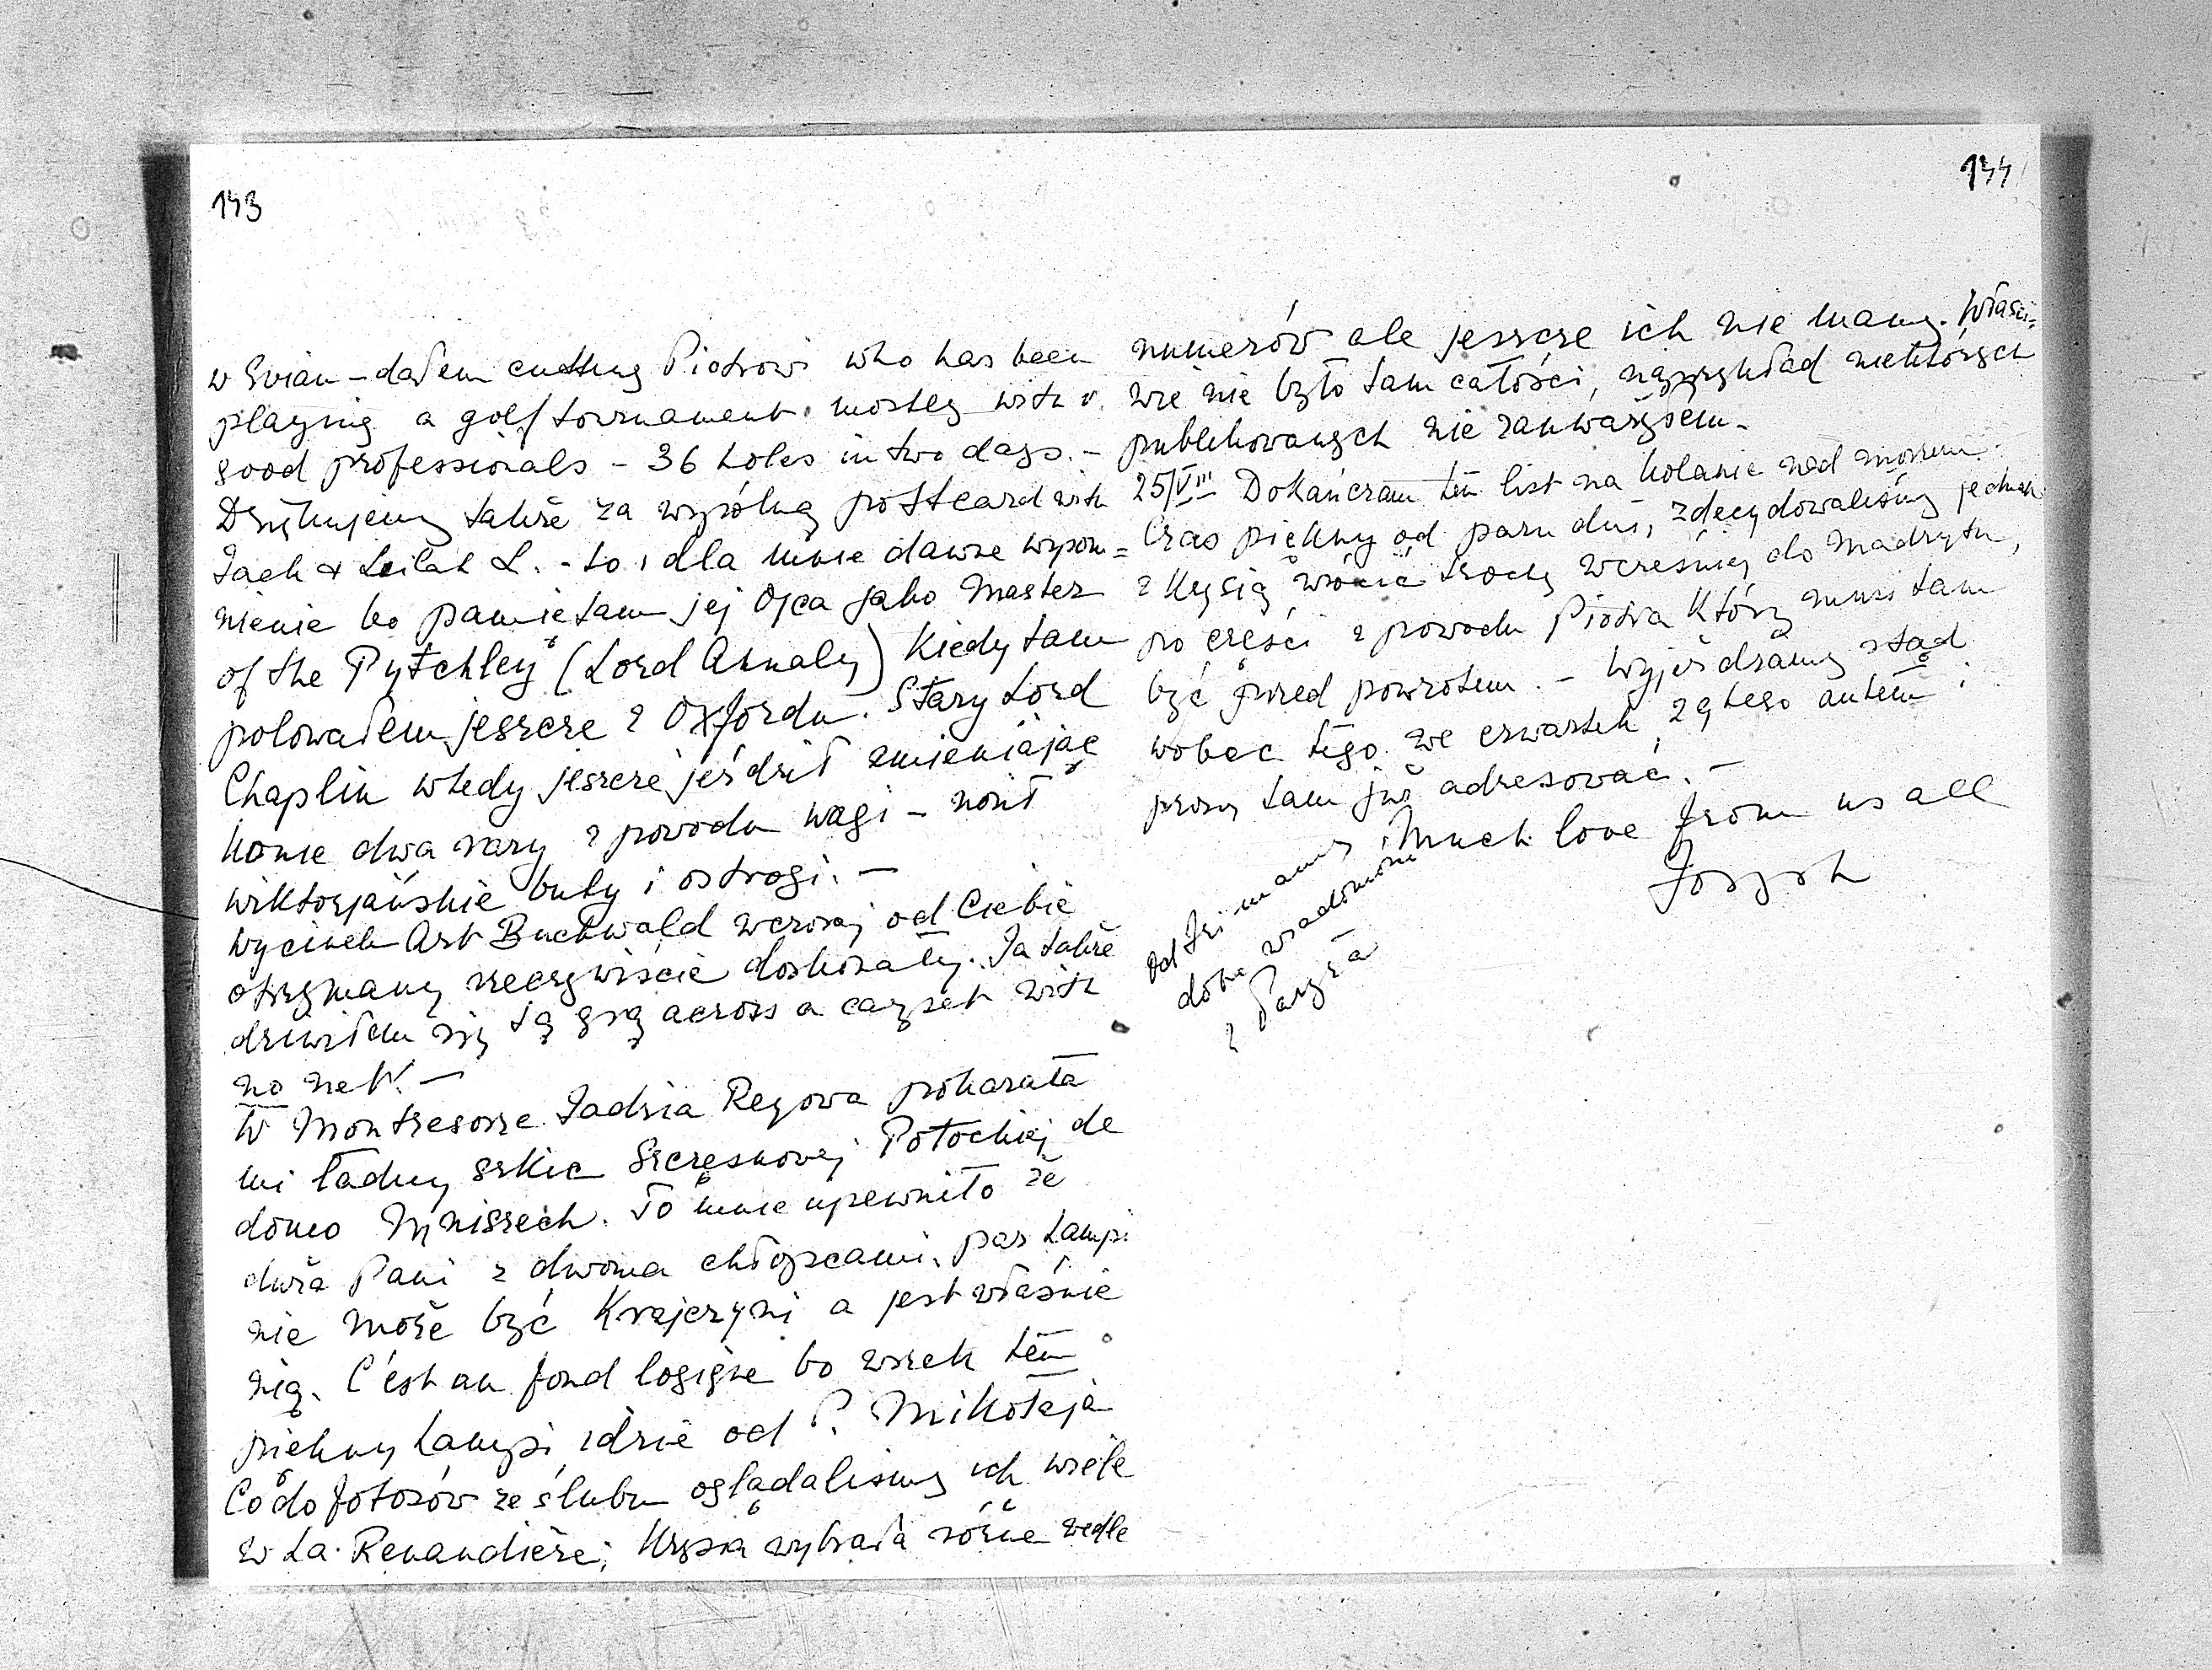 143
w Evian – dałem cutting Piotrowi who has been
playing a golf tournament mostly with v.
good professionals – 36 holes in two days. –
Dziękujemy także za wspólną postcard with
Jack & Leilah L. – to i dla mnie dawne wspom=
nienie bo pamiętam jej Ojca jako Master
of the Pytchley (Lord Annaly) kiedy tam
polowałem jeszcze z Oxfordu. Stary Lord
Chaplin wtedy jeszcze jeździł zmieniając
konie dwa razy z powodu wagi – nosił
wiktorjańskie buty i ostrogi. –
Wycinek Art Buchwald wczoraj od Ciebie
otrzymany rzeczywiście doskonały. Ja także
dziwiłem się tą grą across a carpet with
no net! –
W Montresorze Jadzia Reyowa pokazała
mi ładny szkic Szczęsnowej Potockiej de
domo Mniszech. To mnie upewniło że
duża Pani z dwoma chłopcami par Lampi
nie może być Krajczyni a jest właśnie
nią. C'est au fond logique bo wszek ten
piękny Lampi idzie od P. Mikołaja
Co do fotosów ze ślubu oglądaliśmy ich wiele
w La Renaudière; Krysia wybrała różne wedle
144
numerów ale jeszcze ich nie mamy. Właści=
wie nie było tam całości, naprzykład niektórych
publikowanych nie zauważyłem –
25/VIII Dokańczam ten list na kolanie nad morzem.
Czas piękny od paru dni, zdecydowaliśmy jednak
z Krysią wrócić trochę wcześniej do Madrytu,
po części z powodu Piotra który musi tam
być przed powrotem. – Wyjeżdżamy stąd
wobec tego we czwartek 29tego autem i
proszę tam już adresować. –
Much love from us all
Józych
Od Izi mamy
dobre wiadomości
z Paryża